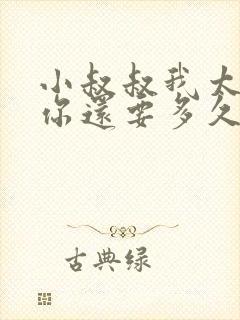 小叔叔我大
你還要多久
古典绿